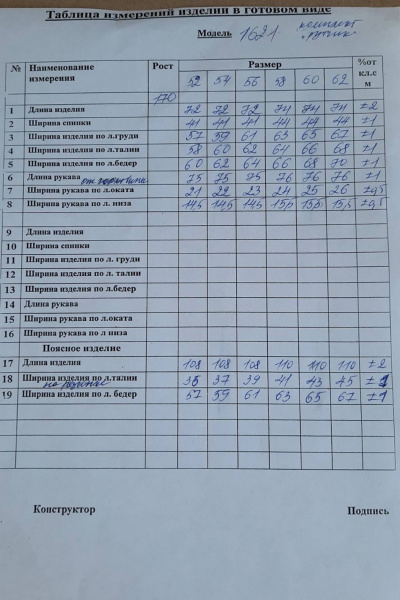 Таблица измерений изделий в готовом виде
Модель 1621 комплект
№ Наименование измерения Рост Размер %от кл.с м
52 54 56 58 60 62
170
1 Длина изделия 72 72 72 74 74 74 ±2
2 Ширина спинки 41 41 41 44 44 44 ±1
3 Ширина изделия по л.груди 57 59 61 63 65 67 ±1
4 Ширина изделия по л.талии 58 60 62 64 66 68 ±1
5 Ширина изделия по л.бедер 60 62 64 66 68 70 ±1
6 Длина рукава от горловины 75 75 75 76 76 76 ±1
7 Ширина рукава по л.оката 21 22 23 24 25 26 ±0,5
8 Ширина рукава по л. низа 14,5 14,5 14,5 15,5 15,5 15,5 ±0,5
9 Длина изделия
10 Ширина спинки
11 Ширина изделия по л. груди
12 Ширина изделия по л. талии
13 Ширина изделия по л.бедер
14 Длина рукава
15 Ширина рукава по л.оката
16 Ширина рукава по л низа
Поясное изделие
17 Длина изделия 108 108 108 110 110 110 ±2
18 Ширина изделия по л.талии 35 37 39 41 43 45 ±1
на резинке
19 Ширина изделия по л. бедер 57 59 61 63 65 67 ±1
Конструктор Подпись